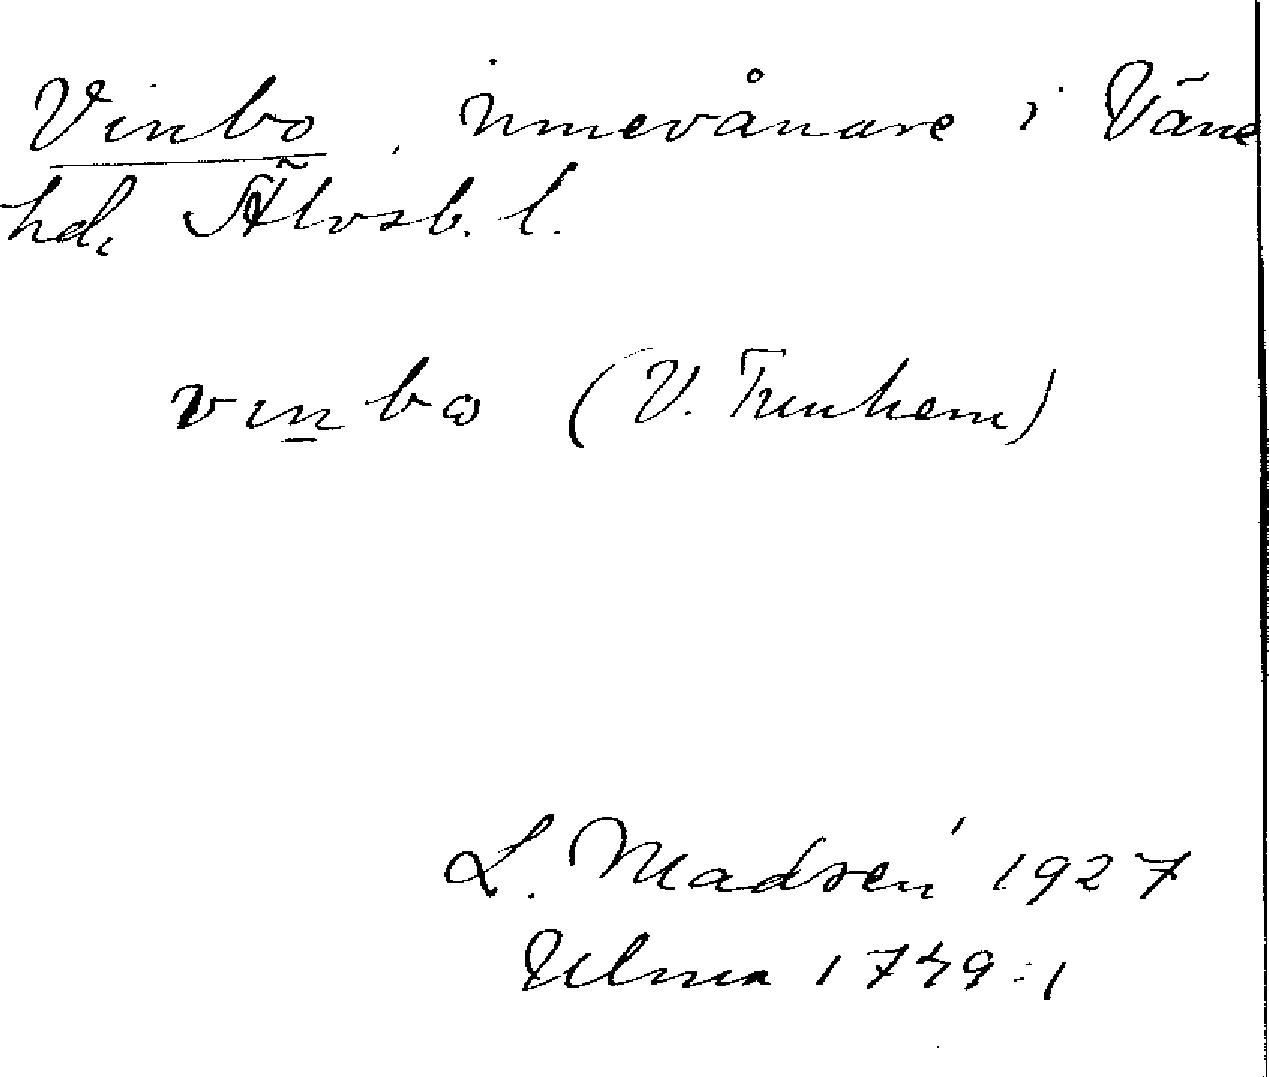 Vinbo, innevånare i Väne
hd, Älvsb. l.
vinbo (V. Tunhem)
L. Madsén 1927
Ulma 1749:1